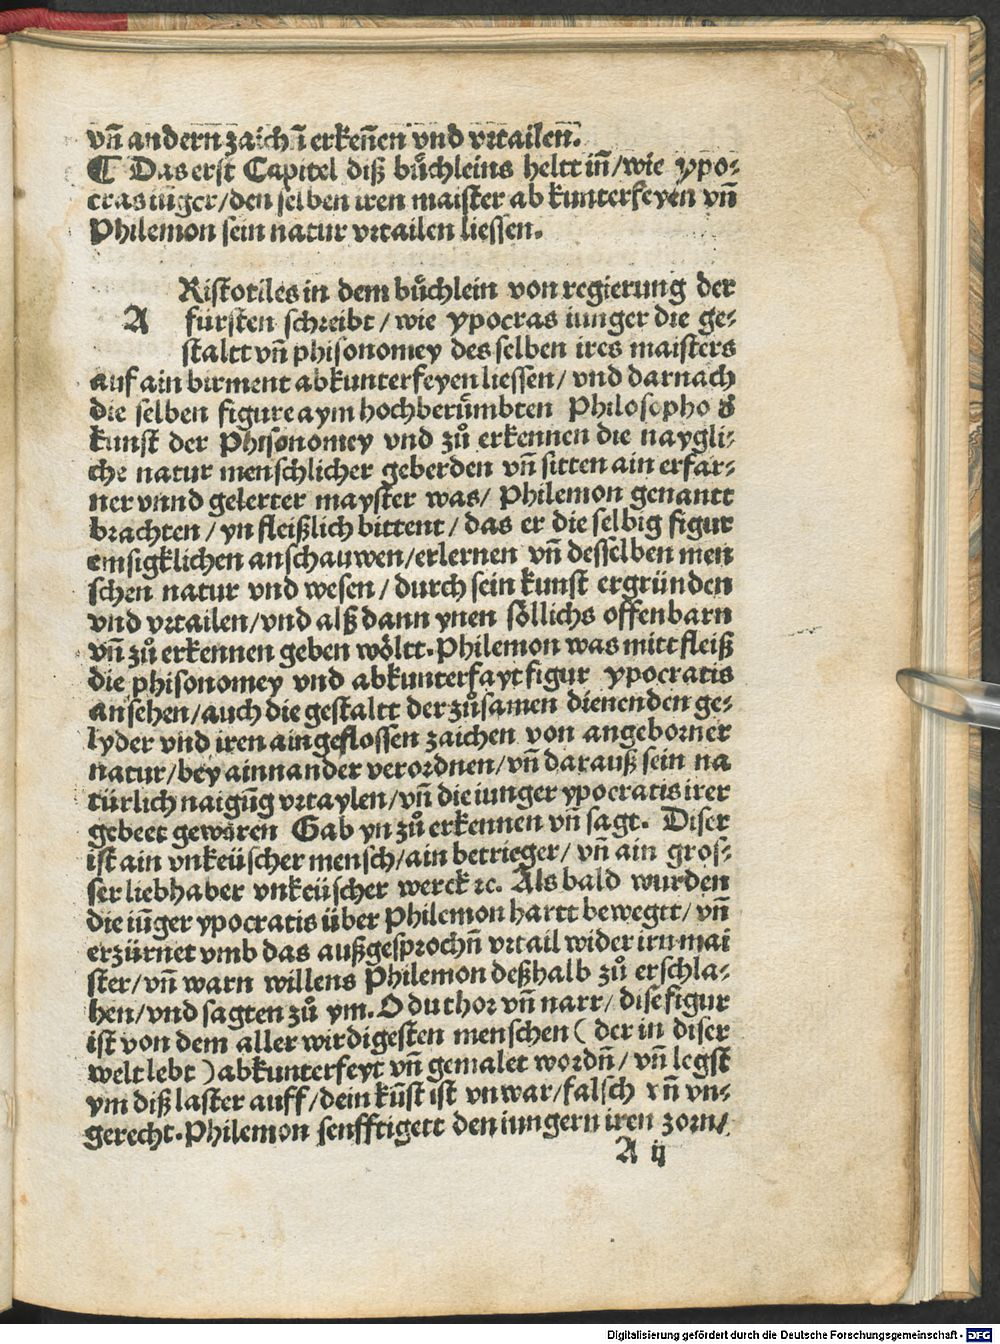 vñ andern zaichĩ erkeñen vnd vrtailen.
¶ Das erst Capitel diß bůchleins heltt iñ/wie ypo⸗
cras iũger/den selben iren maister abkunterfeyen vñ
Philemon sein natur vrtailen liessen.
Ristotiles in dem bůchlein von regierung der
A fürsten schreibt/wie ypocras iunger die ge⸗
staltt vñ phisonomey des selben ires maisters
auf ain birment abkunterfeyen liessen/vnd darnach
die selben figure aym hochberůmbten Philosopho d̕
kunst der Phisonomey vnd zů erkennen die naygli⸗
che natur menschlicher geberden vñ sitten ain erfar⸗
ner vnnd gelerter mayster was/Philemon genantt
brachten/yn fleißlich bittent/das er die selbig figur
emsigklichen anschauwen/erlernen vñ desselben men
schen natur vnd wesen/durch sein kunst ergründen
vnd vrtailen/vnd alß dann ynen söllichs offenbarn
vñ zů erkennen geben wöltt.Philemon was mitt fleiß
die phisonomey vnd abkunterfayt figur ypocratis
ansehen/auch die gestaltt der zůsamen dienenden ge⸗
lyder vnd iren aingeflossen zaichen von angeborner
natur/bey ainnander verordnen/vñ darauß sein na
türlich naigũg vrtaylen/vñ die iunger ypocratis irer
gebeet geweren Gab yn zů erkennen vñ sagt. Diser
ist ain vnkeüscher mensch/ain betrieger/vñ ain gros⸗
ser liebhaber vnkeüscher werck ⁊c. Als bald wurden
die iũger ypocratis über Philemon hartt bewegtt/vñ
erzürnet vmb das außgesprochñ vrtail wider irn mai
ster/vñ warn willens Philemon deßhalb zů erschla⸗
hen/vnd sagten zů ym. O du thor vñ narr/dise figur
ist von dem aller wirdigesten menschen (der in diser
welt lebt) abkunterfeyt vñ gemalet wordñ/vñ legst
ym diß laster auff/dein kũst ist vnwar/falsch vñ vn⸗
gerecht.Philemon senfftigett den iungern iren zorn/
A ij
Digitalisierung gefördert durch die Deutsche Forschungsgemeinschaft - DFG